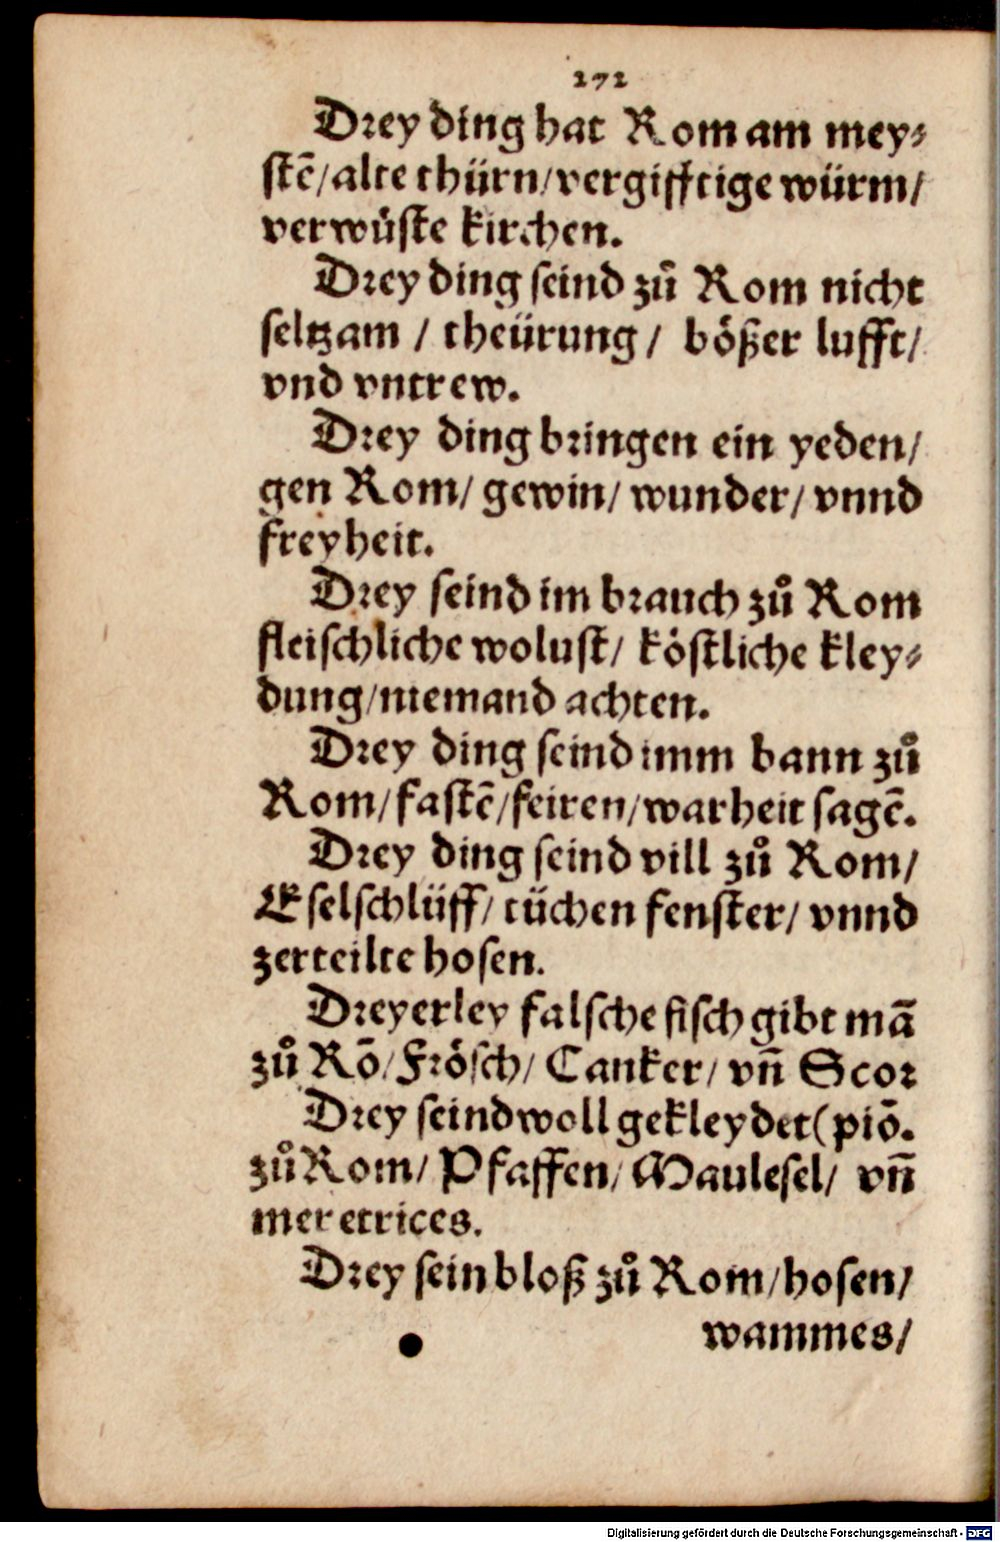 272
Drey ding hat Rom am mey⸗
stē/alte thürn/vergifftige würm/
verwüste kirchen.
Drey ding seind zů Rom nicht
seltzam / theürung / bößer lufft/
vnd vntrew.
Drey ding bringen ein yeden/
gen Rom/ gewin/ wunder/ vnnd
freyheit.
Drey seind im brauch zů Rom
fleischliche wolust/ köstliche kley⸗
dung/niemand achten.
Drey ding seind imm bann zů
Rom/fastē/feiren/warheit sagē.
Drey ding seind vill zů Rom/
Eselschlüff/ tüchen fenster/ vnnd
zerteilte hosen.
Dreyerley falsche fisch gibt mā
zů Rō/Frösch/ Canker/ vn̄ Scor
Drey seind woll gekleydet(piō.
zů Rom/ Pfaffen/ Maulesel/ vn̄
meretrices.
Drey sein bloß zů Rom/hosen/
wammes/
Digitalisierung gefördert durch die Deutsche Forschungsgemeinschaft - DFG